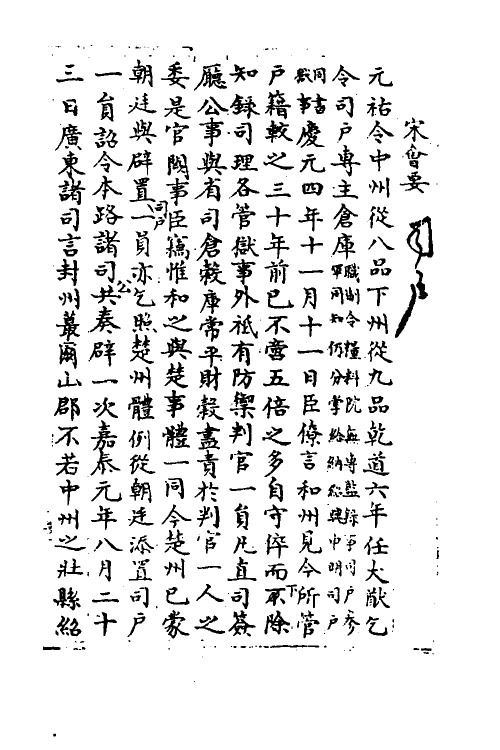 宋會要 司户
元祐令中州從八品下州從九品乾道六年任大猷乞
令司户專主倉庫職制令糧料院無專監錄事司户參
軍同知仍分掌給納綜與申明司户
同書獄事慶元四年十一月十一日臣僚言和州見今所管
户籍較之三十年前已不啻五倍之多自守倅而下不除
知録司理各管獄事外祇有防禦判官一員凡直司簽
廳公事與省司倉穀庫常平財穀盡責於判官一人之
委是官闕事臣竊惟和之與楚事體一同今楚州已蒙
朝廷與辟置司户一員亦乞照楚州體例從朝廷添置司户
一員詔令本路諸司公共奏辟一次嘉泰元年八月二十
三日廣東諸司言封州蕞爾山郡不若中州之壯縣紹